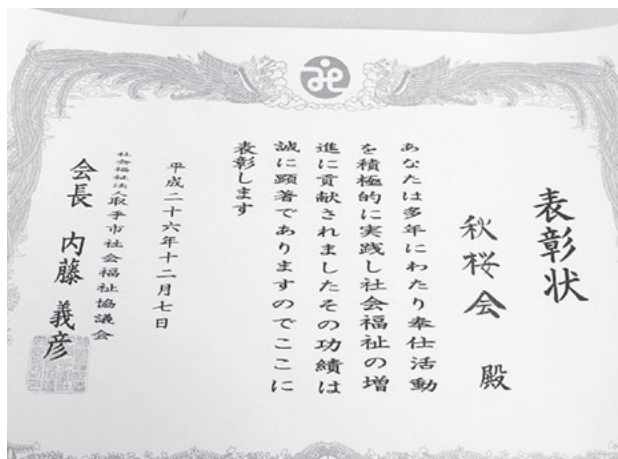 表彰状
秋桜会 殿
あなたは多年にわたり奉仕活動
を積極的に実践し社会福祉の増
進に貢献されましたその功績は
誠に顕著でありますのでここに
表彰します
平成二十六年十二月七日
社会福祉法人取手市社会福祉協議会
会長 内藤義彦